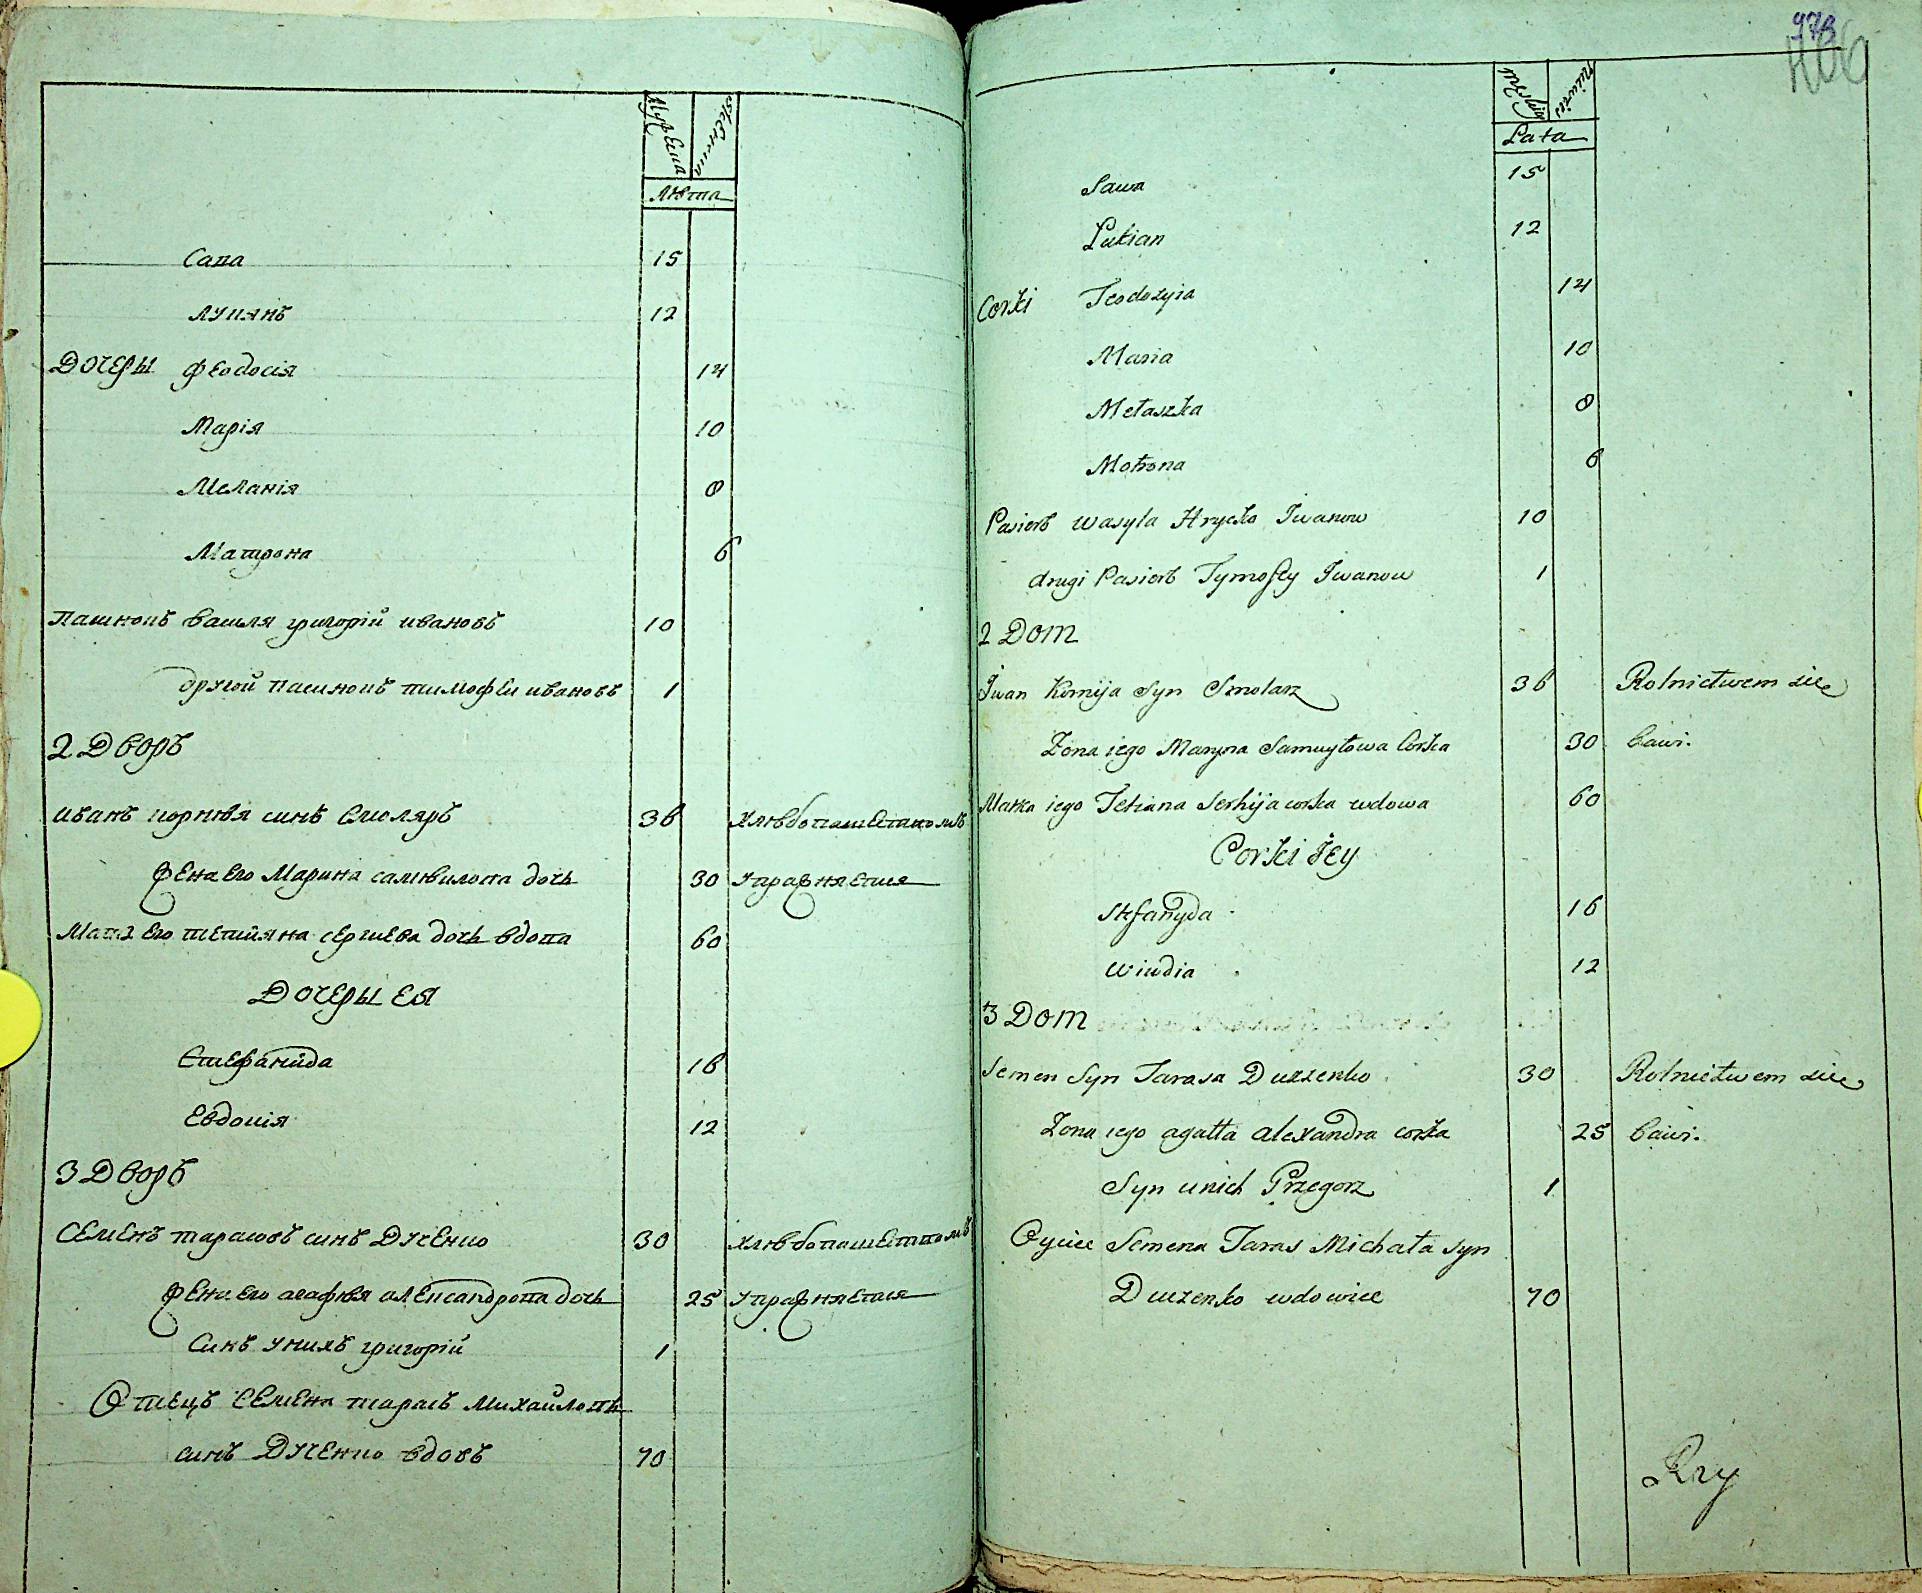 Мужеска Женска
Лѣта
Сава 15
Лукянъ 12
Дочеры Феодосія 14
Марія 10
Меланія 8
Матрона 6
Пасинокъ василя григорій ивановъ 10
другой пасинокъ тимофей ивановъ 1
2 Дворъ
иванъ корнѣя синъ Смоляръ 36 Хлѣбопашествомъ
жена его Марина самойлова дочь 30 упражняется
Мать его тетияна сергиева дочь вдова 60
Дочеры ея
Стефанида 16
Евдокія 12
3 Дворъ
Семенъ тарасовъ синъ Дученко 30 Хлѣбопашествомъ
жена его агафѣя александрова дочь 25 упражняется
Синъ у нихъ григорій 1
Отецъ Семена тарасъ Михайловъ
синъ Дученко вдовъ 70
973
406
Męskija Niewieś
Lata
Sawa 15
Lukian 12
Corki Teodozyia 14
Maria 10
Mełaszka 8
Motrona 6
Pasierb wasyla Hrycko Iwanow 10
drugi Pasierb Tymofiy Iwanow 1
2 Dom
Iwan Kornija Syn Smolarz 36 Rolnictwem sie
Zona iego Maryna Samuyłowa Corka 30 bawi.
Matka iego Tetiana Serhija corka wdowa 60
Corki Iey
Stefanyda 16
Wiwdia 12
3 Dom
Semen Syn Tarasa Duczenko 30 Rolnictwem sie
Zona iego agatta alexandra corka 25 bawi.
Syn u nich Grzegorz 1
Oyciec Semena Taras Michała syn
Duczenko wdowiec 70
Rzy